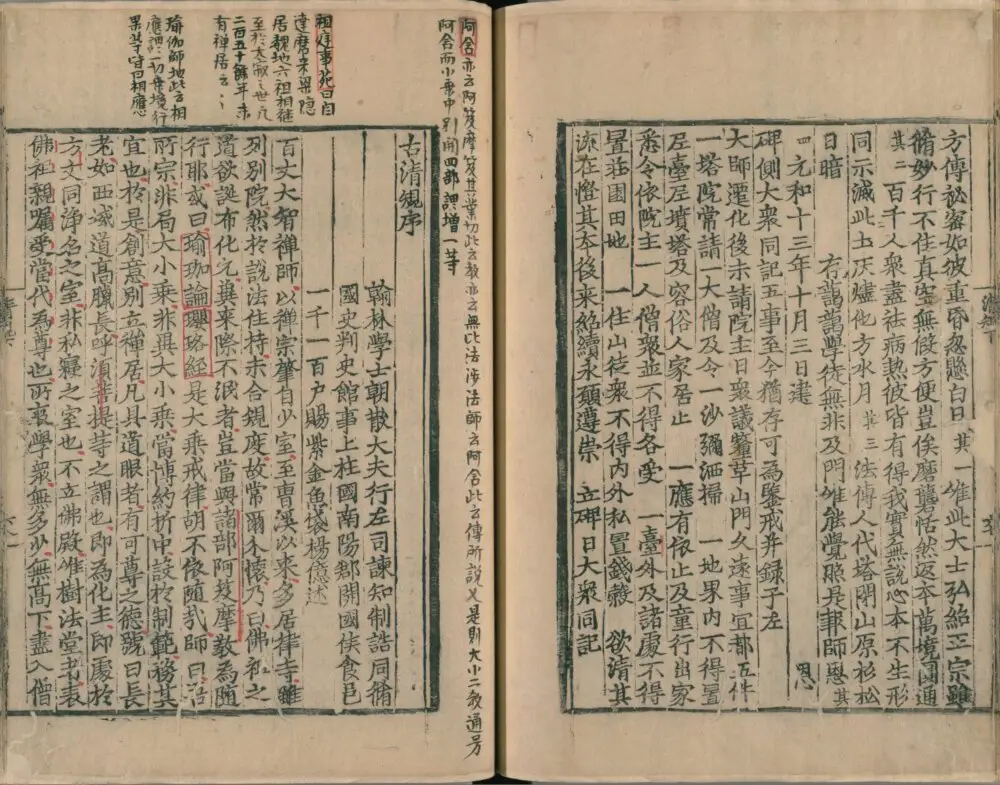 方傳祕密如彼重昏忽懸白日 其一 唯此大士弘紹正宗雖
脩妙行不住真空無假方便豈俟磨礱恬然返本萬境圓通
其二 百千人衆盡祛病熱彼皆有得我實無說心本不生形
同示滅此土灰爐他方水月 其三 法傳人代塔閉山原杉松
日暗 藹藹學徒無非及門唯能覺照是報師恩 其
四 元和十三年十月三日建
碑側大衆同記五事至今猶存可為鑒戒并録于左
大師遷化後未請院主日衆議釐革山門久遠事宜都五件
一塔院常請一大僧及令一沙彌洒掃 一地界内不得置
尼臺尼墳塔及容俗人家居止 一應有依止及童行出家
悉令依院主一人僧衆並不得各受 一臺外及諸處不得
置莊園田地 一住山徒衆不得内外私置錢穀 欲清其
流在澄其本後來紹續永願遵崇 立碑日大衆同記
阿含亦云阿笈摩笈其業切此云教亦云無比法涉法師云阿含此云傳所說義是則大小二教通号
阿含而小乗中別開四部謂增一等
祖庭事苑曰自
達磨来梁隠
居魏地六祖相継
至於大寂之世凡
二百五十餘年未
有禅居云云
瑜伽師地此云相
應謂一切乗境行
果等皆曰相應
古清規序
翰林學士朝散大夫行左司諫知制誥同脩
國史判史館事上柱國南陽郡開國侯食邑
一千一百户賜紫金魚袋楊億述
百丈大智禅師以禅宗肇自少室至曹溪以來多居律寺雖
列別院然於說法住持未合規度故常爾介懷乃曰佛祖之
道欲誕布化元冀來際不泯者豈當與諸部阿笈摩教為隨
行耶或曰瑜珈論瓔珞經是大乗戒律胡不依随哉師曰吾
所宗非局大小乗非異大小乗當博約折中設於制範務其
宜也於是創意別立禅居凡具道眼者有可尊之德號曰長
老如西域道高臘長呼須菩提等之謂也即為化主即處於
方丈同浄名之室非私寢之室也不立佛殿唯樹法堂者表
佛祖親囑受當代為尊也所裒學衆無多少無高下盡入僧